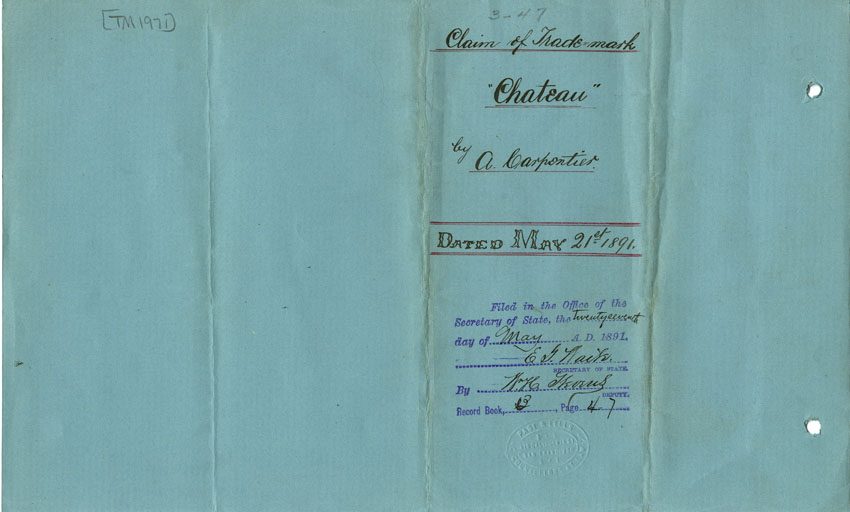 [TM1971]
3-47
Claim of Trade-mark
"Chateau"
by A. Carpentier.
DATED MAY 21st 1891.
Filed in the Office of the
Secretary of State, the twentyseventh
day of May A. D. 1891.
E. G. Waite.
SECRETARY OF STATE.
By W. H.
DEPUTY.
Record Book, 3, Page 47